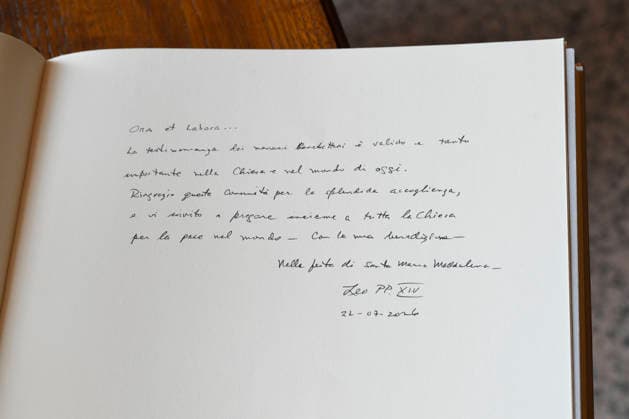 Ora et Labora...
La testimonianza dei monaci Benedettini è valida e tanto
importante nella Chiesa e nel mondo di oggi.
Ringrazio questa Comunità per la splendida accoglienza,
e vi invito a pregare insieme a tutta la Chiesa
per la pace nel mondo — Con la mia benedizione —
Nella festa di santa Maria Maddalena —
Leo PP. XIV
22-07-2026